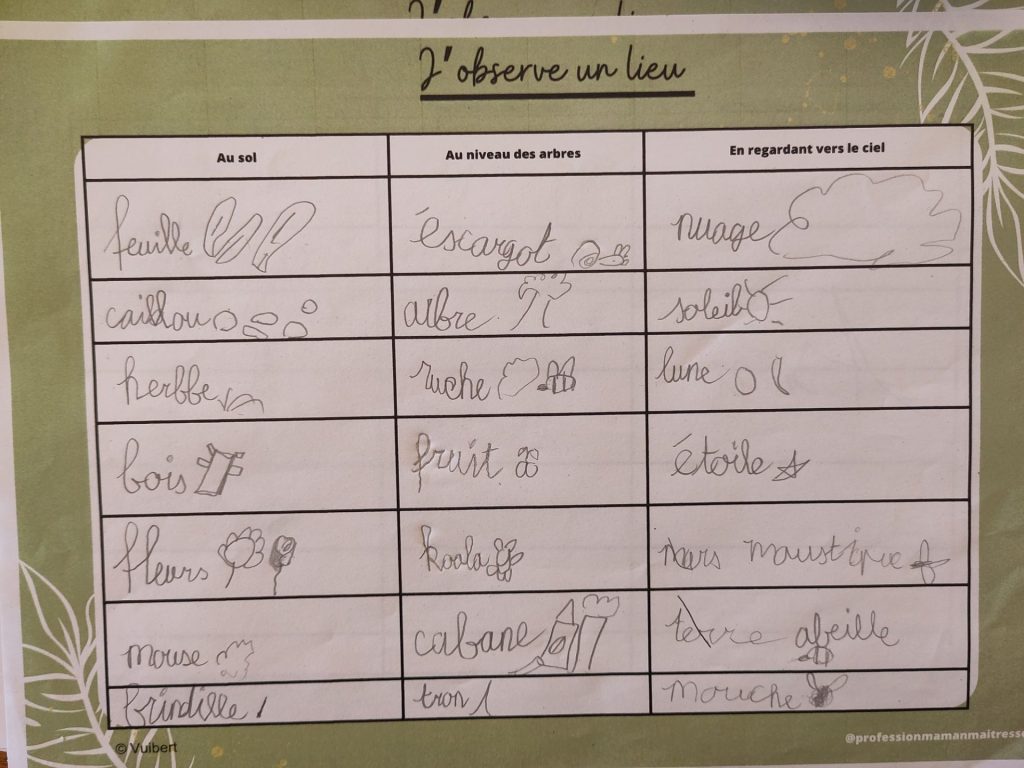 J'observe un lieu
Au sol Au niveau des arbres En regardant vers le ciel
feuille éscargot nuage
caillou arbre soleil
herbbe ruche lune
bois fruit étoile
fleurs koala mars moustique
mouse cabane terre abeille
brindille tron mouche
© Vuibert @professionmamanmaitresse